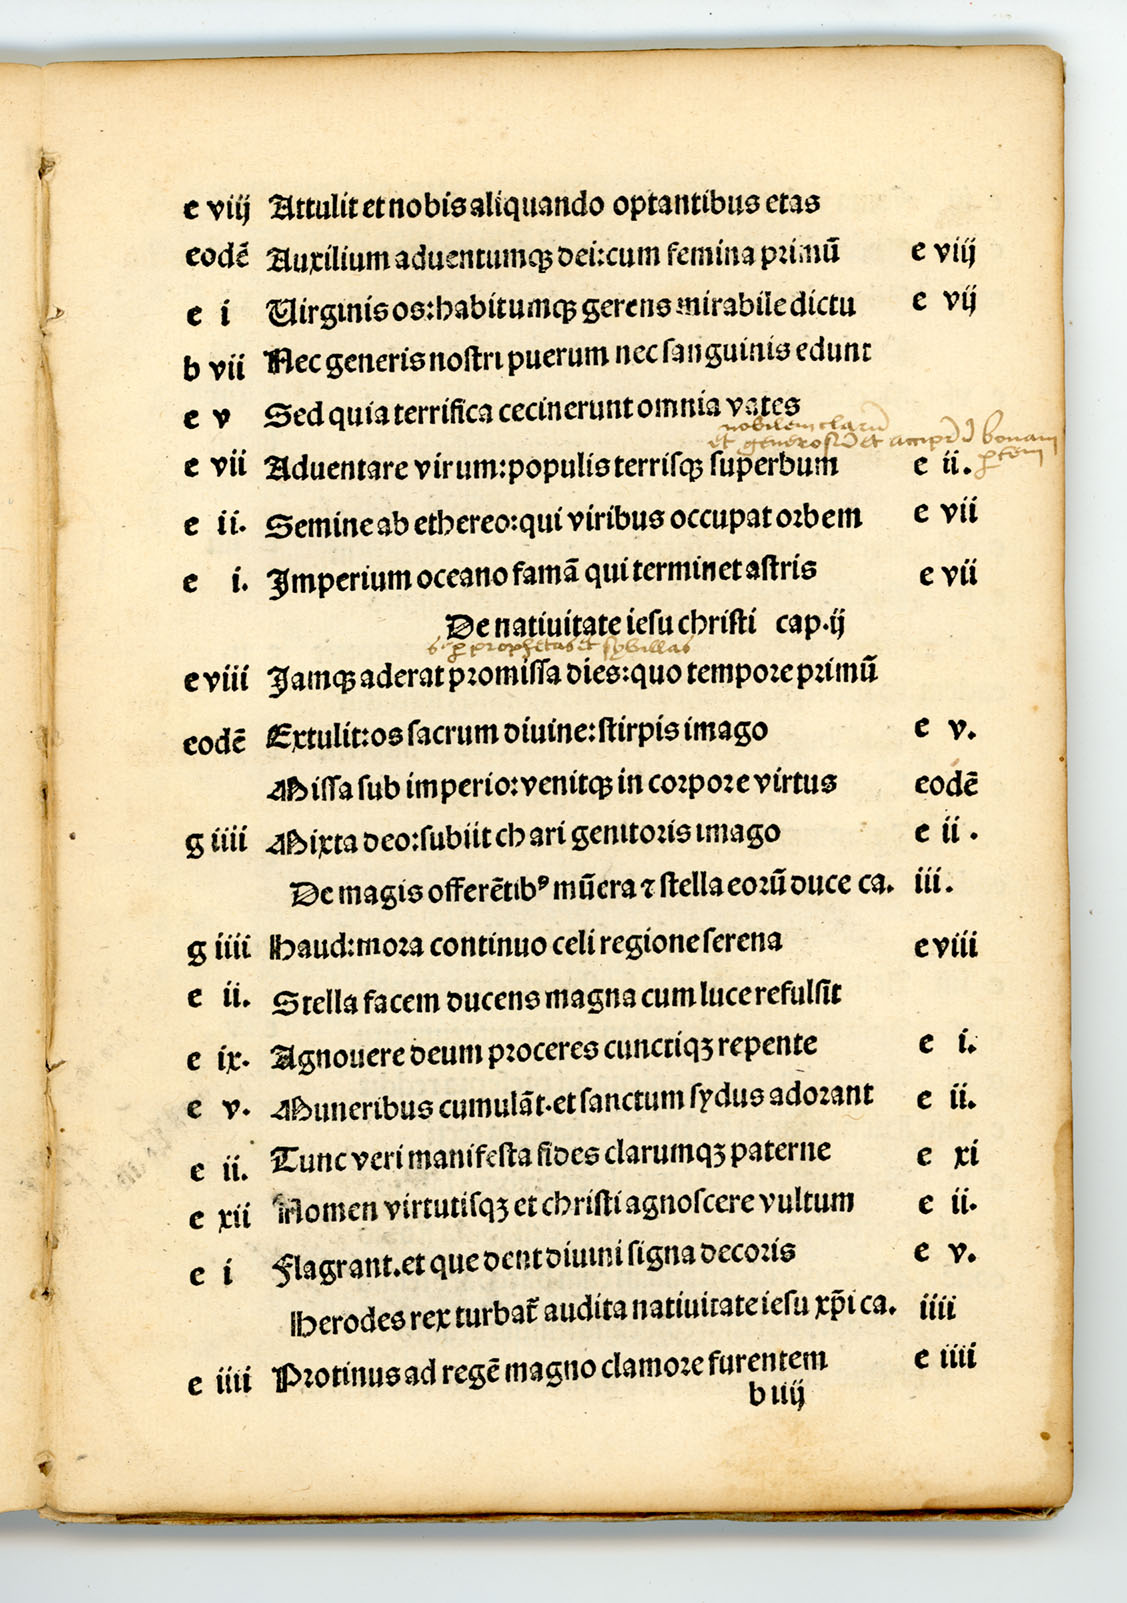 e viij Attulit et nobis aliquando optantibus etas
eodē Auxilium aduentumqꝫ dei:cum femina primū e viij
e i Uirginis os:habitumqꝫ gerens mirabile dictu e vij
b vii Nec generis nostri puerum nec sanguinis edunt
e v Sed quia terrifica cecinerunt omnia vates
nobilem clarū
et generosū et accip̄ ī bonam
ꝑtem
e vii Aduentare virum:populis terrisqꝫ superbum e ii.
e ii. Semine ab ethereo:qui viribus occupat orbem e vii
e i. Imperium oceano famā qui terminet astris e vii
De natiuitate iesu christi cap.ij
s. ꝑ prophetas et sybillas
e viii Jamqꝫ aderat promissa dies:quo tempore primū
eodē Extulit:os sacrum diuine:stirpis imago e v.
Missa sub imperio:venitqꝫ in corpore virtus eodē
g iiii Mixta deo:subiit chari genitoris imago e ii.
De magis offerētibꝰ mūera ⁊ stella eorū duce ca. iii.
g iiii Haud:mora continuo celi regione serena e viii
e ii. Stella facem ducens magna cum luce refulsit
e ix. Agnouere deum proceres cunctiqꝫ repente e i.
e v. Muneribus cumulāt.et sanctum sydus adorant e ii.
e ii. Tunc veri manifesta fides clarumqꝫ paterne e xi
e xii Nomen virtutisqꝫ et christi agnoscere vultum e ii.
e i Flagrant.et que dent diuini signa decoris e v.
Herodes rex turbat̄ audita natiuitate iesu xp̄i ca. iiii
e iiii Protinus ad regē magno clamore furentem e iiii
b iiij